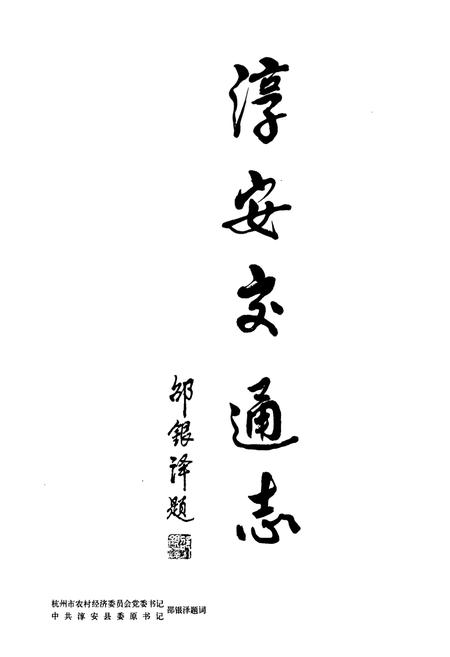 淳安交通志
邵银泽题
杭州市农村经济委员会党委书记
中共淳安县委原书记
邵银泽题词